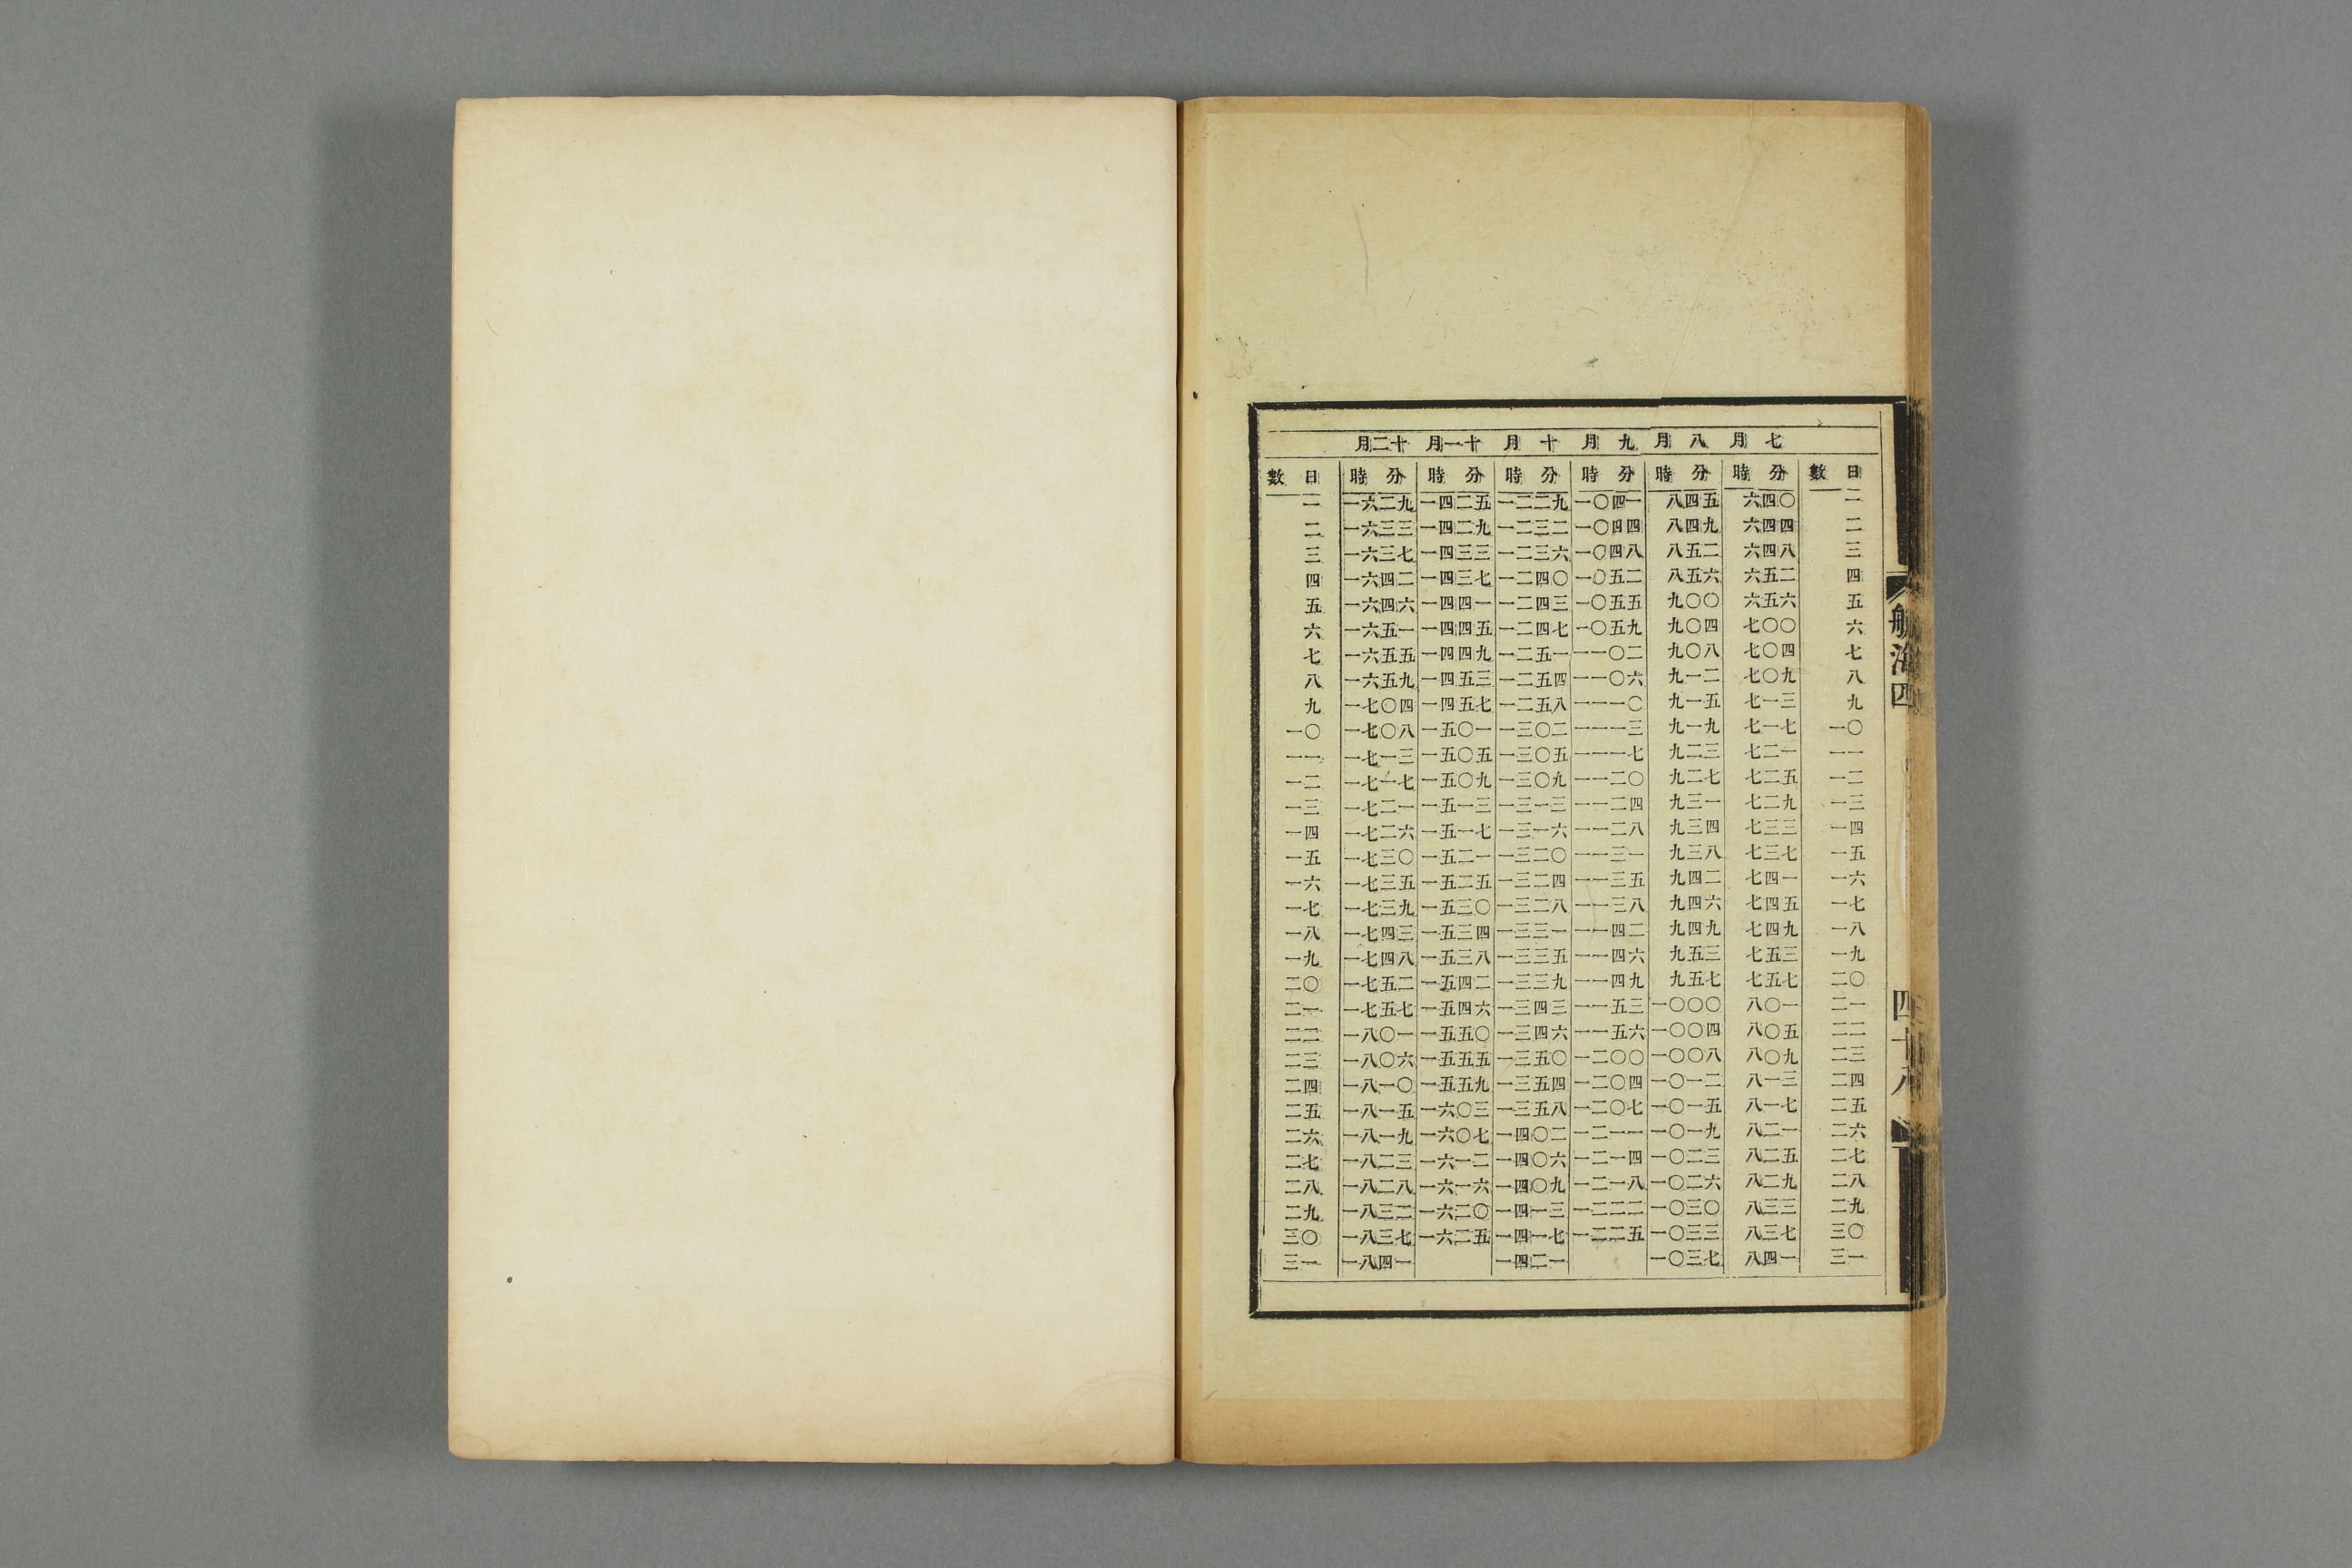 航海四
四十八
七月 八月 九月 十月 十一月 十二月
日數 時分 時分 時分 時分 時分 時分 日數
一 六四〇 八四五 一〇四一 一二二九 一四二五 一六二九 一
二 六四四 八四九 一〇四四 一二三二 一四二九 一六三三 二
三 六四八 八五二 一〇四八 一二三六 一四三三 一六三七 三
四 六五二 八五六 一〇五二 一二四〇 一四三七 一六四二 四
五 六五六 九〇〇 一〇五五 一二四三 一四四一 一六四六 五
六 七〇〇 九〇四 一〇五九 一二四七 一四四五 一六五一 六
七 七〇四 九〇八 一一〇二 一二五一 一四四九 一六五五 七
八 七〇九 九一二 一一〇六 一二五四 一四五三 一六五九 八
九 七一三 九一五 一一一〇 一二五八 一四五七 一七〇四 九
一〇 七一七 九一九 一一一三 一三〇二 一五〇一 一七〇八 一〇
一一 七二一 九二三 一一一七 一三〇五 一五〇五 一七一三 一一
一二 七二五 九二七 一一二〇 一三〇九 一五〇九 一七一七 一二
一三 七二九 九三一 一一二四 一三一三 一五一三 一七二一 一三
一四 七三三 九三四 一一二八 一三一六 一五一七 一七二六 一四
一五 七三七 九三八 一一三一 一三二〇 一五二一 一七三〇 一五
一六 七四一 九四二 一一三五 一三二四 一五二五 一七三五 一六
一七 七四五 九四六 一一三八 一三二八 一五三〇 一七三九 一七
一八 七四九 九四九 一一四二 一三三一 一五三四 一七四三 一八
一九 七五三 九五三 一一四六 一三三五 一五三八 一七四八 一九
二〇 七五七 九五七 一一四九 一三三九 一五四二 一七五二 二〇
二一 八〇一 一〇〇〇 一一五三 一三四三 一五四六 一七五七 二一
二二 八〇五 一〇〇四 一一五六 一三四六 一五五〇 一八〇一 二二
二三 八〇九 一〇〇八 一二〇〇 一三五〇 一五五五 一八〇六 二三
二四 八一三 一〇一二 一二〇四 一三五四 一五五九 一八一〇 二四
二五 八一七 一〇一五 一二〇七 一三五八 一六〇三 一八一五 二五
二六 八二一 一〇一九 一二一一 一四〇二 一六〇七 一八一九 二六
二七 八二五 一〇二三 一二一四 一四〇六 一六一二 一八二三 二七
二八 八二九 一〇二六 一二一八 一四〇九 一六一六 一八二八 二八
二九 八三三 一〇三〇 一二二二 一四一三 一六二〇 一八三二 二九
三〇 八三七 一〇三三 一二二五 一四一七 一六二五 一八三七 三〇
三一 八四一 一〇三七 一四二一 一八四一 三一